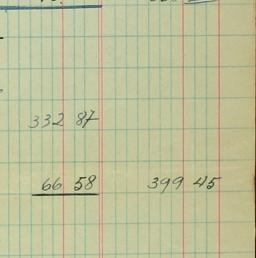 332 87
66 58 399 45